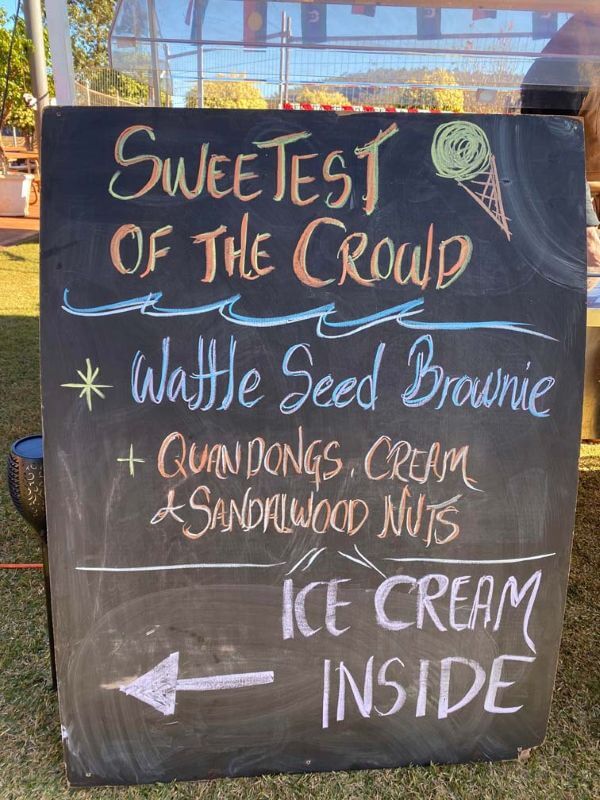 SWEETEST
OF THE CROWD
* Wattle Seed Brownie
+ QUANDONGS, CREAM
& SANDALWOOD NUTS
ICE CREAM
INSIDE